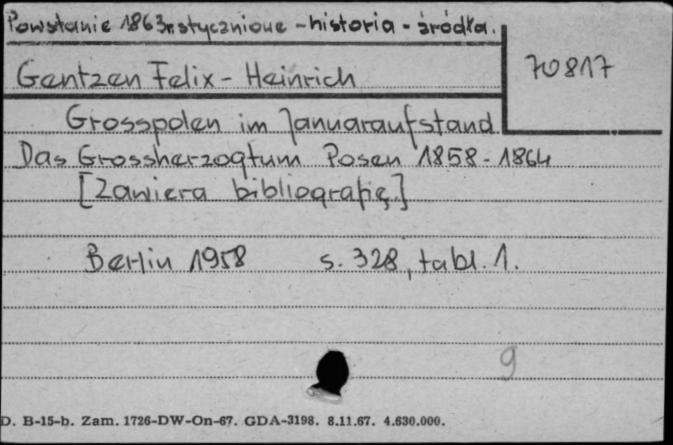 Powstanie 1863r. styczniowe - historia - źródła.
70817
Gentzen Felix - Heinrich
Grosspolen im Januaraufstand
Das Grossherzogtum Posen 1858-1864
[Zawiera bibliografię.]
Berlin 1958 s. 328, tabl. 1.
9
D. B-15-b. Zam. 1726-DW-On-67. GDA-3198. 8.11.67. 4.630.000.